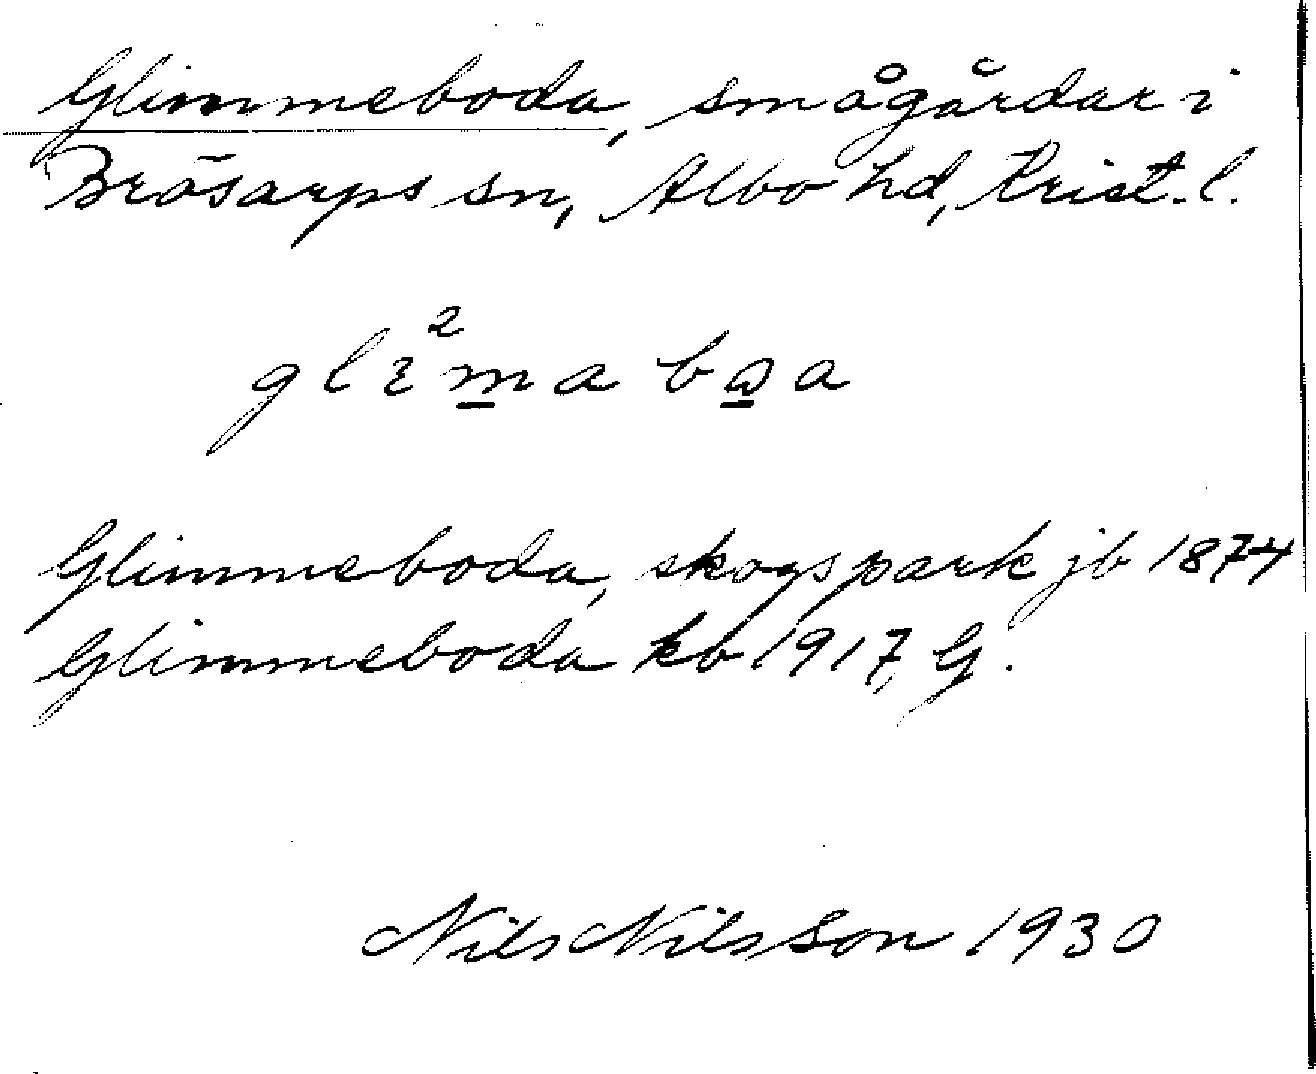 Glimmeboda, smågårdar i
Bråsarps sn, Albo hd, Krist. l.
Glimmeboda, skogspark jb 1874
Glimmeboda kb 1917, G.
Nils Nilsson 1930